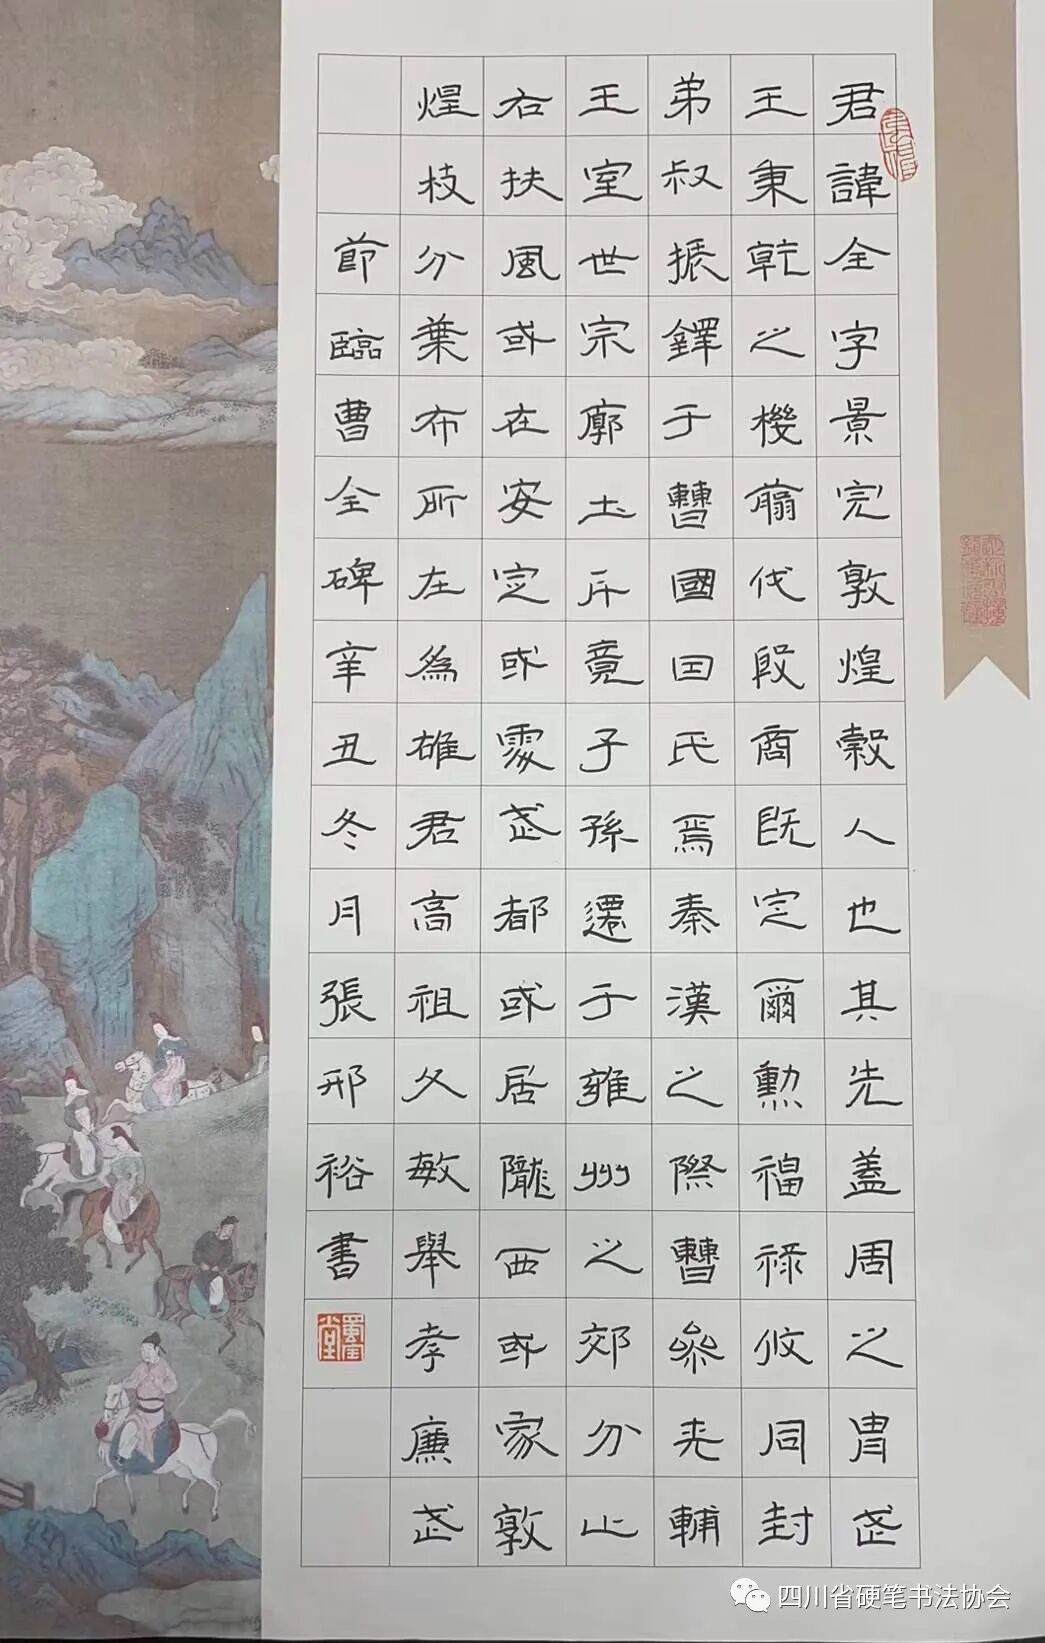 君諱全字景完敦煌穀人也其先蓋周之胄武
王秉乾之機翦伐殷商既定爾勳福祿攸同封
弟叔振鐸于曹國因氏焉秦漢之際曹參夾輔
王室世宗廓土斥竟子孫遷于雍州之郊分止
右扶風或在安定或處武都或居隴西或家敦
煌枝分葉布所在為雄君高祖父敏舉孝廉武
節臨曹全碑辛丑冬月張邢裕書
四川省硬笔书法协会